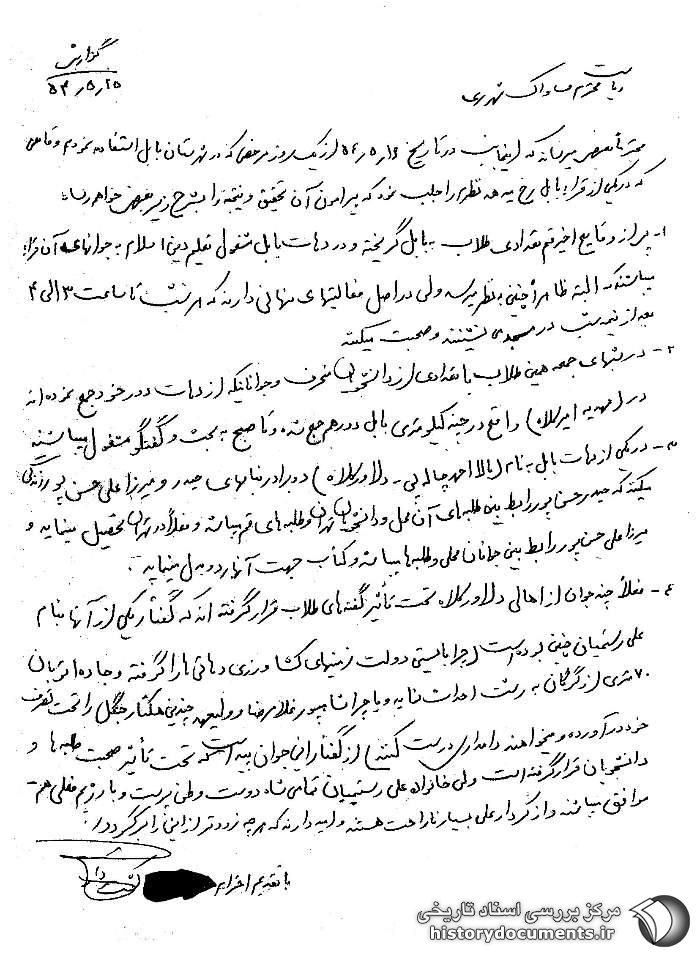 گزارش
۵۴/۵/۲۵
ریاست
محترم ساواک شهرری
محترماً بعرض میرساند که اینجانب در تاریخ ۵۴/۵/۱۶ از یک روز مرخصی که در شهرستان بابل استفاده نمودم وقایعی
که در یکی از قراء بابل رخ میدهد نظرم را جلب نمود که پیرامون آن تحقیق و نتیجه را بشرح زیر بعرض خواهم رساند
۱- پس از وقایع اخیر قم تعدادی طلاب به بابل گریخته و در دهات بابل مشغول تعلیم دین اسلام به جوانهای آن قراء
میباشند که البته ظاهراً چنین به نظر میرسد ولی در اصل فعالیتهای پنهانی دارند که هر شب تا ساعت ۳ الی ۴
بعد از نیمه شب در مسجد می نشینند و صحبت میکنند
۲- در شبهای جمعه همین طلاب با تعدادی از دانشجویان منحرف و جوانانیکه از دهات دور خود جمع نموده اند
در (مهدیه امیرکلاه) واقع در چند کیلومتری بابل دور هم جمع شده و تا صبح به بحث و گفتگو مشغول میباشند
۳- در یکی از دهات بابل به نام (بالا احمد چاله پی - دلاورکلاه) دو برادر بنامهای حیدر و میرزا علی حسن پور زندگی
میکنند که حیدر حسن پور رابط بین طلبه های آن محل و دانشجویان تهران و طلبه های قم میباشد و فعلاً در تهران تحصیل مینماید و
میرزا علی حسن پور رابط بین جوانان محلی و طلبه ها میباشد و کتاب جهت آنها رد و بدل مینماید.
۴- فعلاً چند جوان از اهالی دلاورکلاه تحت تأثیر گفته های طلاب قرار گرفته اند که گفتار یکی از آنها بنام
علی رستمیان چنین بوده است (چرا بایستی دولت زمینهای کشاورزی دهاتی ها را گرفته و جاده اتوبان
۷۰ متری از گرگان به رشت احداث نماید و یا چرا شاهپور غلامرضا و ولیعهد چندین هکتار جنگل را تحت تصرف
خود درآورده و میخواهند دامداری درست کنند) از گفتار این جوان پیداست که تحت تأثیر صحبت طلبه ها و
دانشجویان قرار گرفته است ولی خانواده علی رستمیان تمامی شاه دوست و وطن پرست و با رژیم فعلی هم
موافق میباشند و از کردار علی بسیار ناراحت هستند و امید دارند که هر چه زودتر از این راه برگردد.
با تقدیم احترام
مرکز بررسی اسناد تاریخی
historydocuments.ir